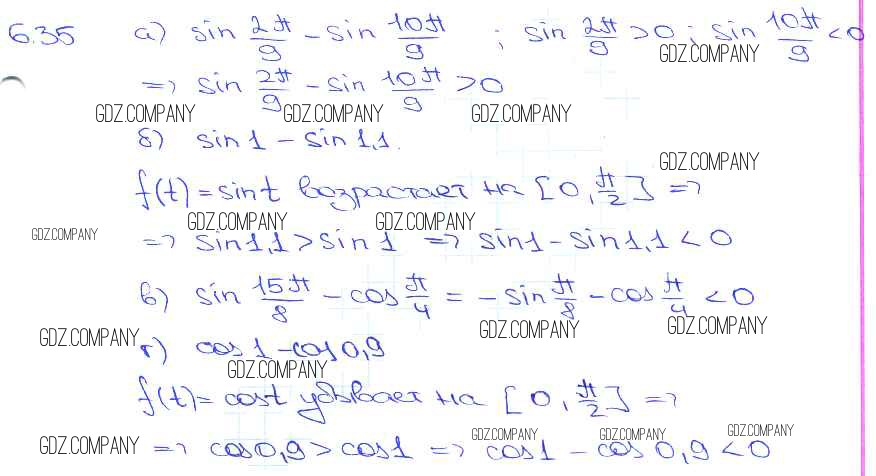 6.35 а) sin 2π/9 − sin 10π/9 ; sin 2π/9 > 0 ; sin 10π/9 < 0
GDZ.COMPANY
=> sin 2π/9 − sin 10π/9 > 0
GDZ.COMPANY GDZ.COMPANY GDZ.COMPANY
б) sin 1 − sin 1,1.
GDZ.COMPANY
f(t) = sin t возрастает на [0, π/2] =>
GDZ.COMPANY GDZ.COMPANY
GDZ.COMPANY => sin 1,1 > sin 1 => sin 1 − sin 1,1 < 0
в) sin 15π/8 − cos π/4 = − sin π/8 − cos π/4 < 0
GDZ.COMPANY GDZ.COMPANY GDZ.COMPANY
г) cos 1 − cos 0,9
GDZ.COMPANY
f(t) = cos t убывает на [0, π/2] =>
GDZ.COMPANY GDZ.COMPANY GDZ.COMPANY GDZ.COMPANY
=> cos 0,9 > cos 1 => cos 1 − cos 0,9 < 0